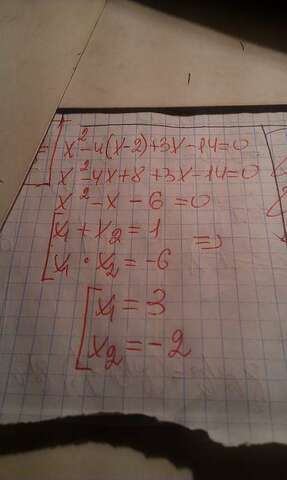 x²-4(x-2)+3x-14=0
x²-4x+8+3x-14=0
x²-x-6=0
x₁+x₂=1 =>
x₁·x₂=-6
x₁=3
x₂=-2